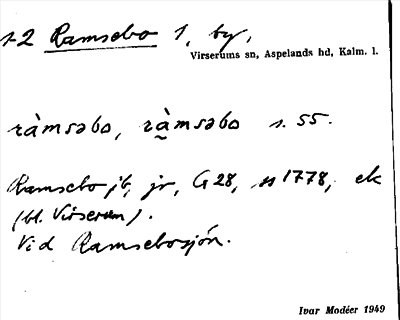 1-2 Ramsebo 1, by,
Virserums sn, Aspelands hd, Kalm. l.
ràmsəbo, rà̰msəbo s. 55.
Ramsebo jb, jr, G 28, 1778, ek
(bl. Virserum).
Vid Ramsebosjön.
Ivar Modéer 1949